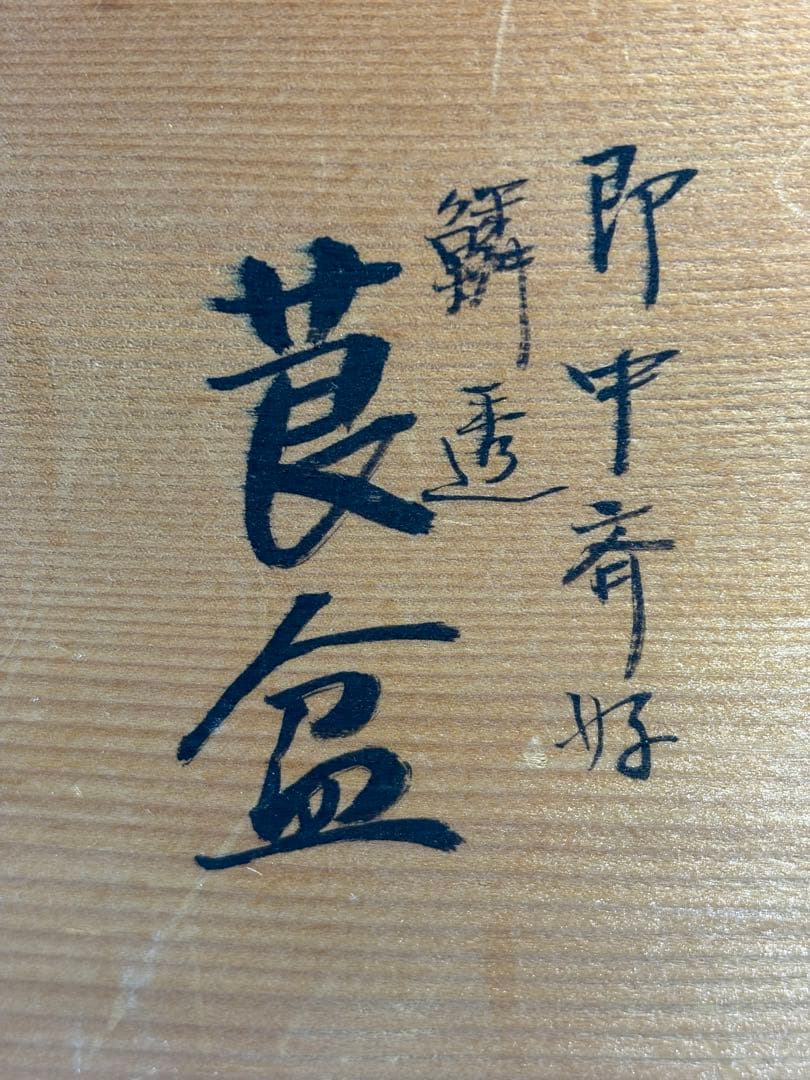 即中斉好
鱗透
莨盆